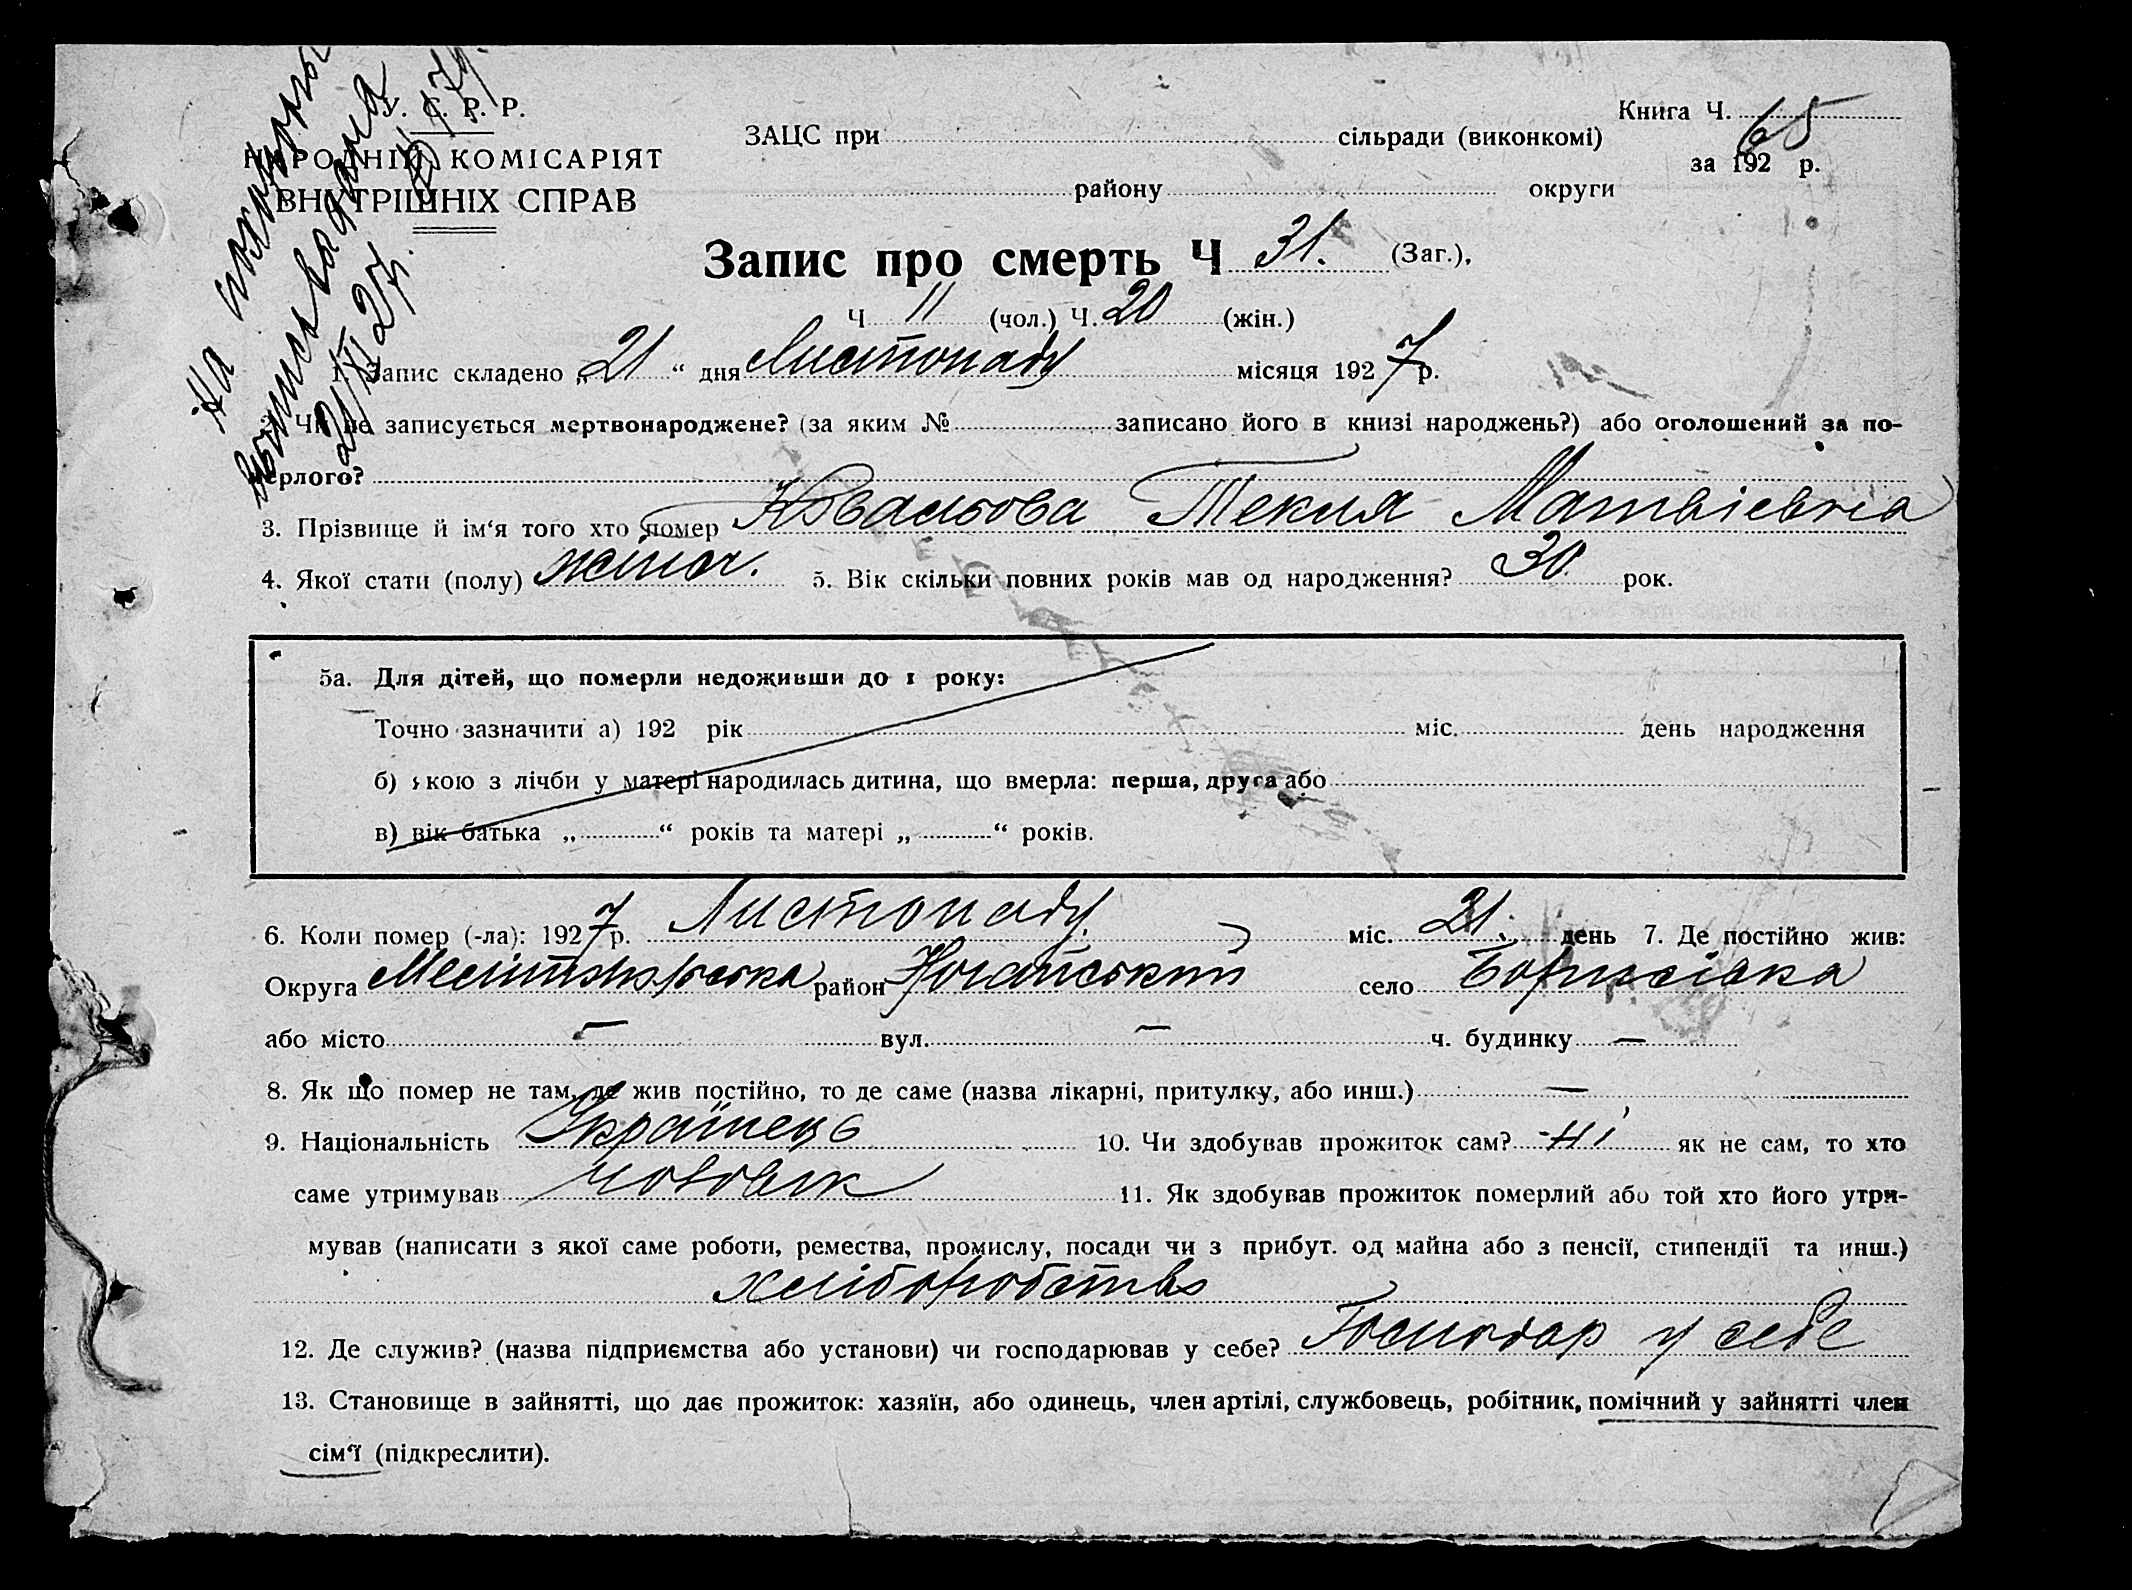 У. С. Р. Р.
НАРОДНІЙ КОМІСАРІЯТ
ВНУТРІШНІХ СПРАВ
Книга Ч. 65
ЗАЦС при сільради (виконкомі)
за 192 р.
району округи
Запис про смерть Ч 31. (Заг.),
Ч 11 (чол.) Ч. 20 (жін.)
На
1. Запис складено „21“ дня Листопаду місяця 1927 р.
2. Чи не записується мертвонароджене? (за яким № записано його в книзі народжень?) або оголошений за по-
мерлого?
3. Прізвище й ім‘я того хто помер Ковальова Текля Матвієвна
4. Якої стати (полу) жіноч. 5. Вік скільки повних років мав од народження? 30 рок.
5а. Для дітей, що померли недоживши до 1 року:
Точно зазначити а) 192 рік міс. день народження
б) якою з лічби у матері народилась дитина, що вмерла: перша, друга або
в) вік батька „ “ років та матері „ “ років.
6. Коли помер (-ла): 1927 р. Листопаду міс. 21. день 7. Де постійно жив:
Округа Мелітопільська район Ногайський село Борисівка
або місто — вул. — ч. будинку —
8. Як що помер не там, де жив постійно, то де саме (назва лікарні, притулку, або инш.) —
9. Національність Українець 10. Чи здобував прожиток сам? Ні як не сам, то хто
саме утримував чоловік 11. Як здобував прожиток померлий або той хто його утри-
мував (написати з якої саме роботи, ремества, промислу, посади чи з прибут. од майна або з пенсії, стипендії та инш.)
хліборобство
12. Де служив? (назва підприємства або установи) чи господарював у себе? Господар у себе
13. Становище в зайнятті, що дає прожиток: хазяїн, або одинець, член артілі, службовець, робітник, помічний у зайнятті член
сім‘ї (підкреслити).